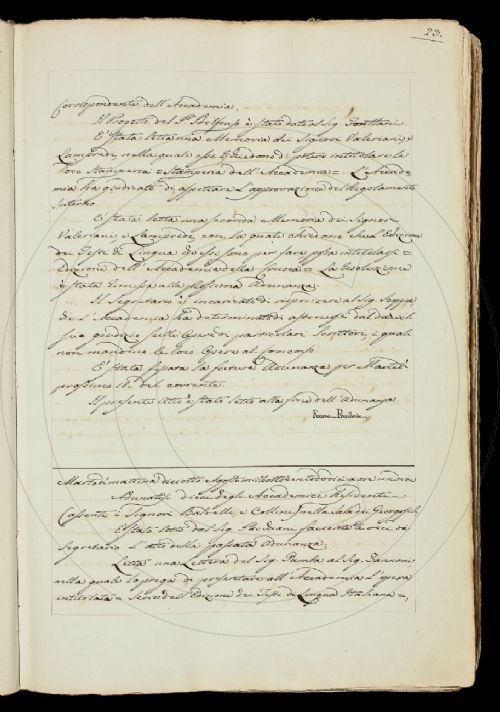 23.
Corrispondente dell'Accademia.
Il Progetto del P. Ildefonso è stato dato al Sig.
È stata letta una Memoria dei Signori Valeriani e
Lampredi, nella quale essi chiedono di poter intitolare la
loro Stamperia = Stamperia dell'Accademia = L'Accade-
mia ha giudicato di aspettare l'approvazione del Regolamento
interno.
È stata letta una seconda Memoria dei Signori
Valeriani e Lampredi, con la quale chiedono che l'Edizione
dei Testi di Lingua da essi possa intitolarsi =
Edizione dell'Accademia della Crusca = La risoluzione
è stata rimessa alla prossima Adunanza.
Il Segretario è incaricato di rispondere al Sig.
che l'Accademia ha determinato di astenersi dal dare il
suo giudizio sulle Opere di particolari Scrittori, i quali
non mandino le loro Opere al Concorso.
È stata fissata la futura Adunanza per Martedì
prossimo 18 del corrente.
Il presente Atto è stato letto alla fine dell'Adunanza
Martedì mattina diciotto Agosto milleottocentododici a ore undici
Adunatisi dieci degli Accademici Residenti
Assenti i Signori e Collini nella Sala dei Georgofili
È stato letto dal Sig. facente le veci di
Segretario l'Atto della passata Adunanza.
Letta una Lettera del Sig. al Sig. Zannoni
nella quale lo prega di presentare all'Accademia l'opera
intitolata = Serie dell'Edizioni dei Testi di Lingua Italiana =,